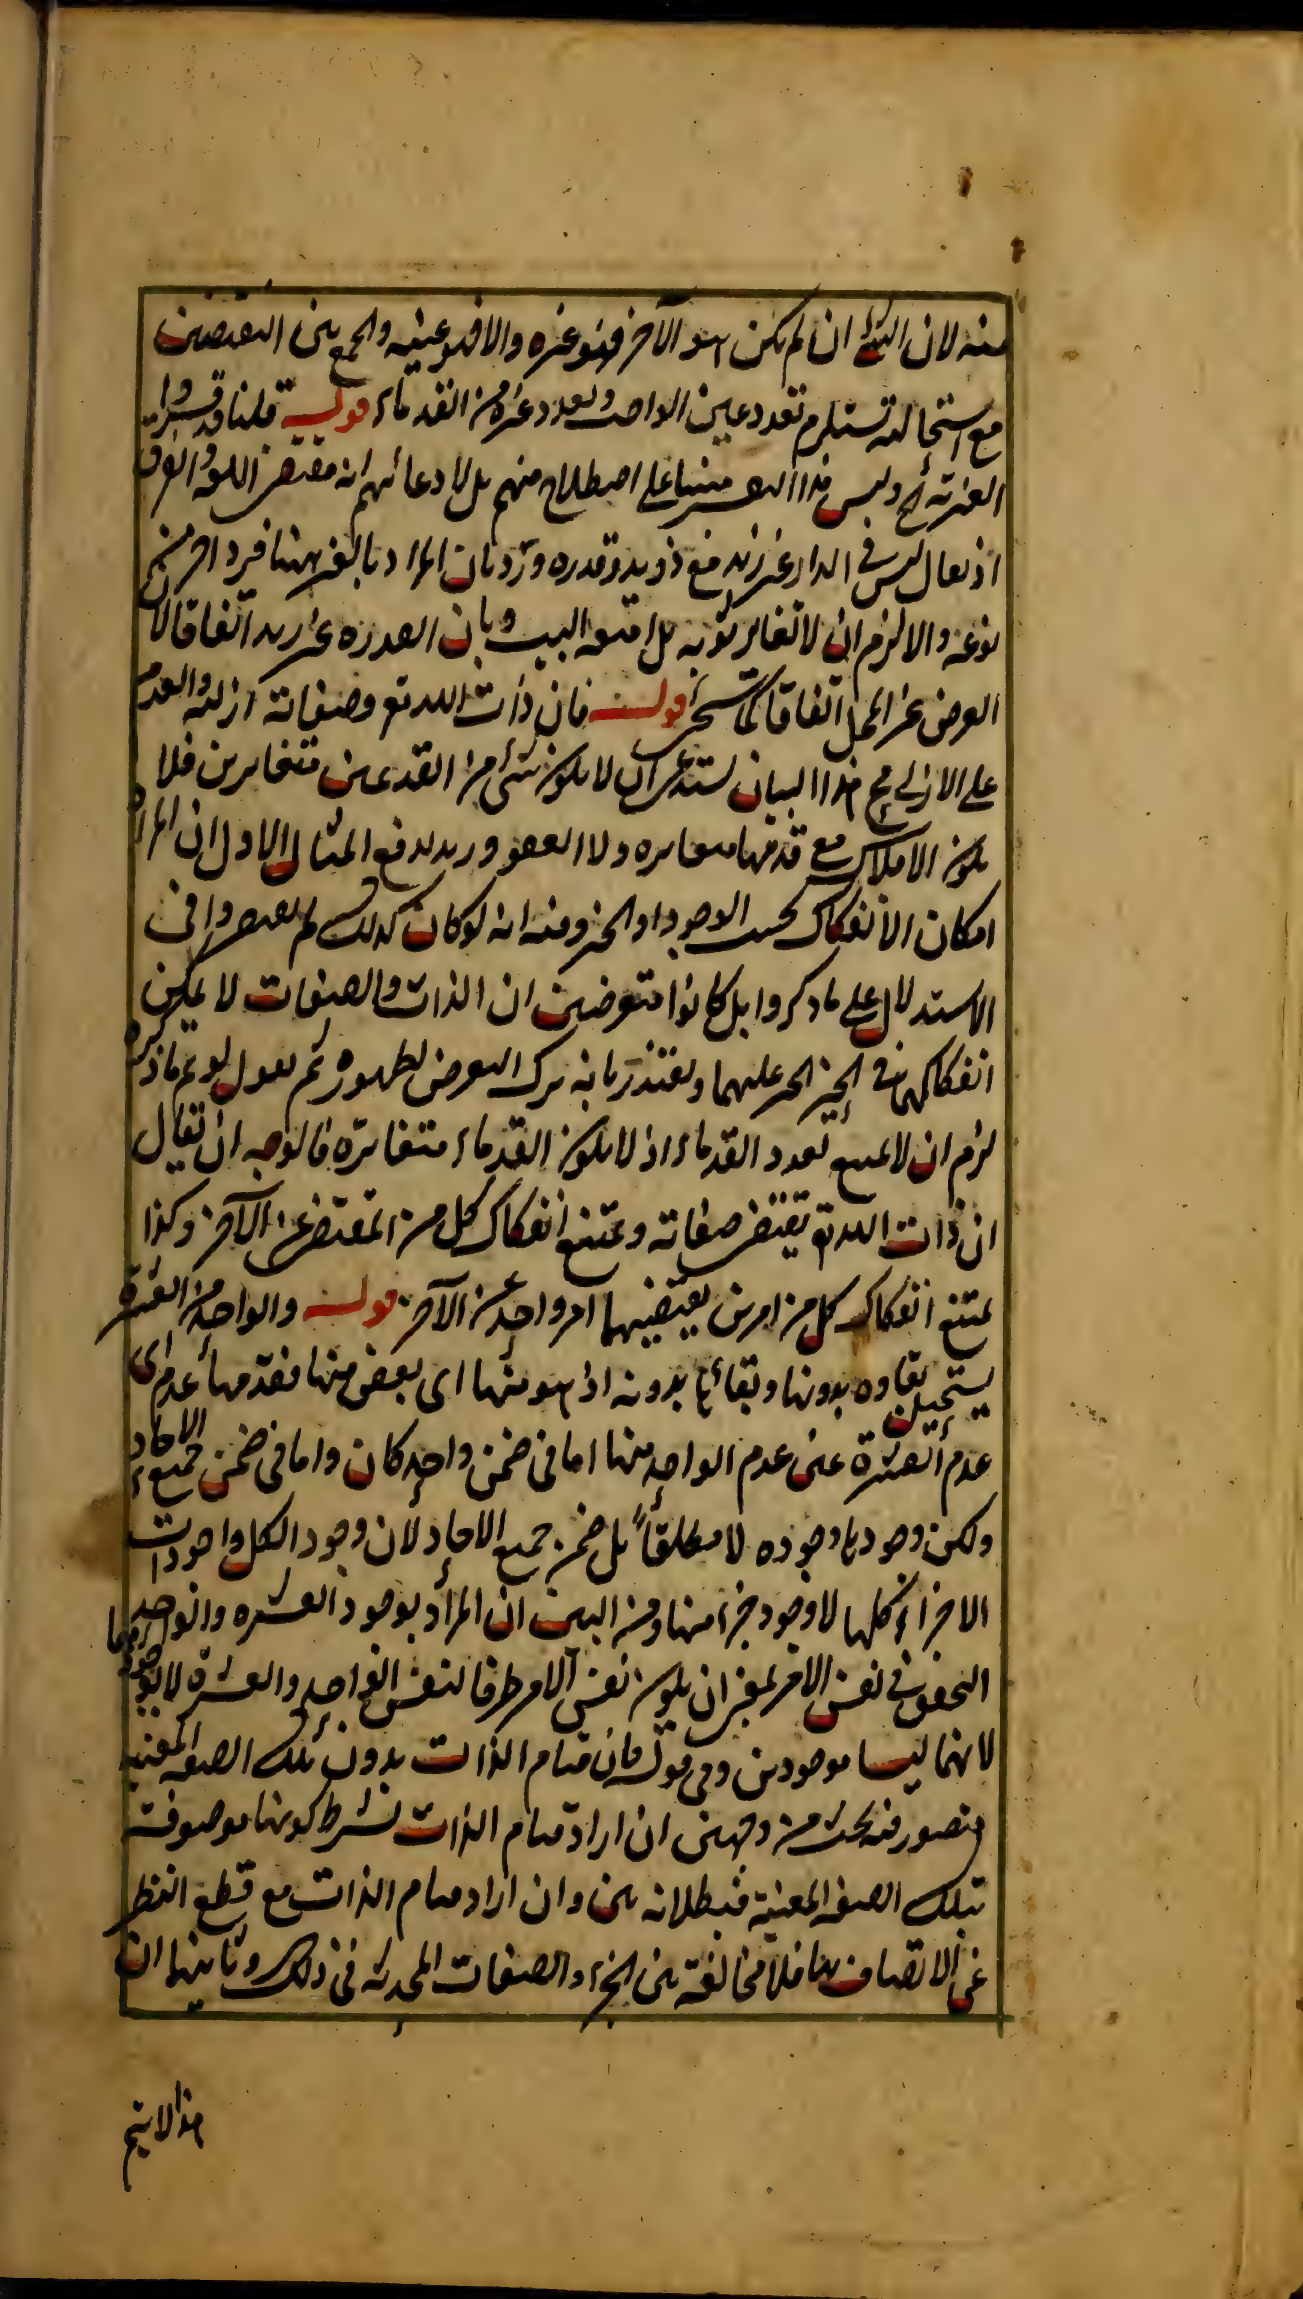 منه لان الشئ ان لم يكن هو الآخر فهو غيره والا فهو عينه والجمع بين النقيضين
مع استحالته تستلزم تعدد عين الواحد وتعدد غيره من القدماء قوله قلنا قد فسروا
الغيرية الخ وليس هذا التفسير مبنيا على اصطلاح منهم بل لادعائهم انه مقتضى اللغة والعرف
اذ يقال ليس في الدار غير زيد مع ذو يد وقدره ورد بان المراد بالغير ههنا فرد آخر من
نوعه والا لزم ان لا تغاير ثوبه بل امتعة البيت وبان القدرة غير زيد اتفاقا لان
العرض غير المحل اتفاقا كما سيجئ قوله فان ذات الله تع وصفاته ازلية والعدم
على الازلي مح هذا البيان يستدعى ان لا يكون شئ من القديمين متغايرين فلا
يكون الافلاك مع قدمها متغايره ولا العقو ويريد لدفع المثال الاول ان المراد
امكان الانفكاك بحسب الوجود او الحيز وفيه انه لو كان كذلك لم يقتصروا في
الاستدلال على ما ذكروا بل كانوا متعرضين ان الذات والصفات لا يمكن
انفكاكهما في الحيز عليهما ويعتذر بانه ترك التعرض لظهوره ثم نقول لو تم ما ذكره
لزم ان لا يمتنع تعدد القدماء اذ لا يكون القدماء متغايرة فالوجه ان يقال
ان ذات الله تع يقتضى صفاته ويمتنع انفكاك كل من المقتضى عن الآخر وكذا
يمتنع انفكاك كل من امرين يقتضيهما امر واحد عن الآخر قوله والواحد من العشرة
يستحيل بقاوه بدونها وبقائها بدونه اذ هو منها اى بعض منها فعدمها عدمه اى
عدم العشرة عين عدم الواحد منها اما في ضمن واحد كان واما في ضمن جميع الآحاد
ولكن وجودها وجوده لا مطلقاً بل ضمن جميع الآحاد لان وجود الكل وجودات
الاجزاء كلها لا وجود جزء منها ومن البين ان المراد بوجود العشرة والواحد منها
التحقق في نفس الامر بمعنى ان يكون نفس الامر ظرفا لنفس الواحد والعشرة لا لوجودهما
لانهما ليسا موجودين وفي قوله فان قيام الذات بدون تلك الصفة المعينة
متصور فيه بحث من وجهين ان اراد قيام الذات بشرط كونها موصوفة
بتلك الصفة المعينة فبطلانه بين وان اراد قيام الذات مع قطع النظر
عن الاتصاف بها فلا مخالفة بين الجزء والصفات المحدثة في ذلك وثانيهما ان
هذا لا يتم